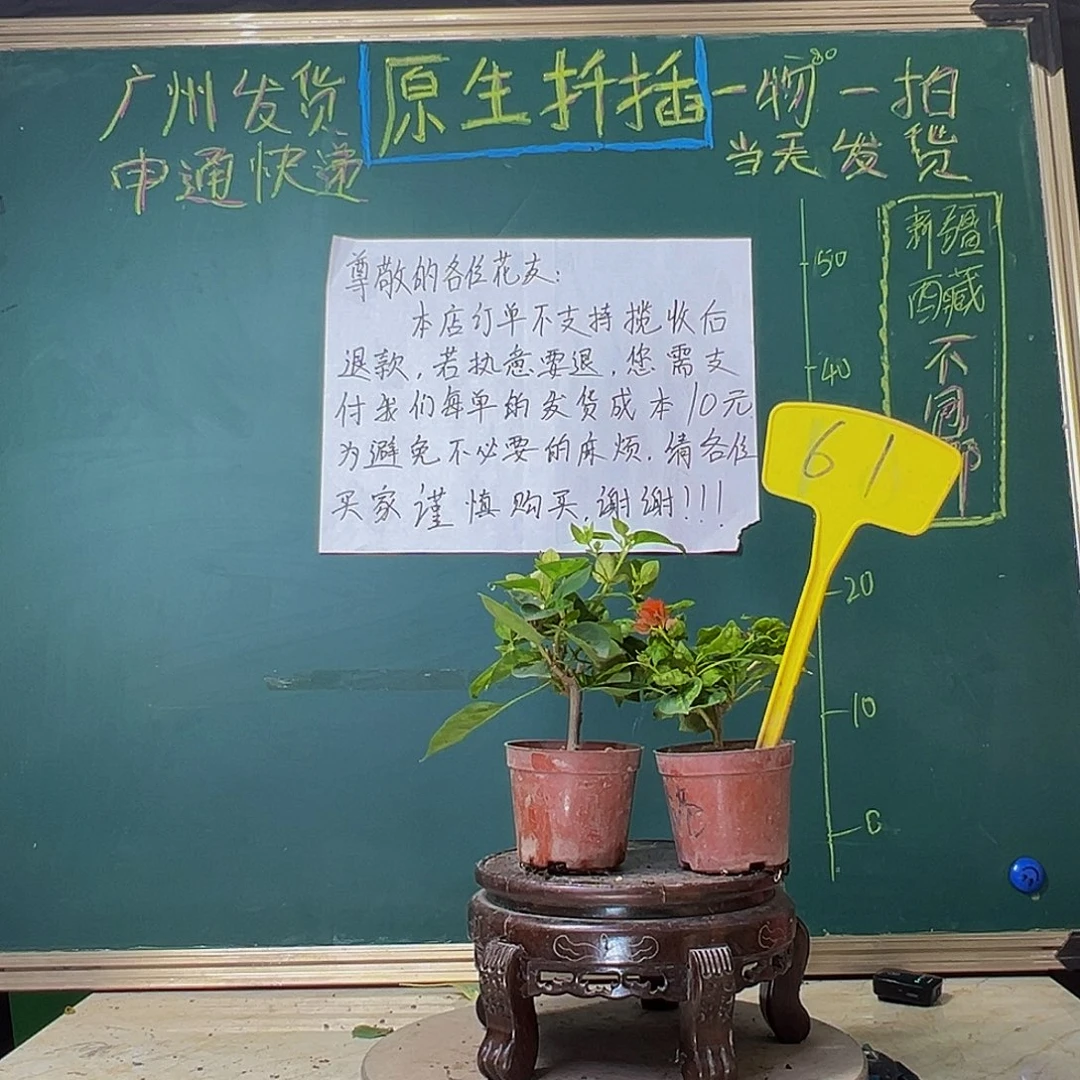 广州发货
申通快递
原生扦插
一物一拍
当天发货
新疆
西藏
不包邮
尊敬的各位花友:
本店订单不支持揽收后
退款,若执意要退,您需支
付我们每单的发货成本10元
为避免不必要的麻烦.请各位
买家谨慎购买,谢谢!!!
50
40
61
20
10
0